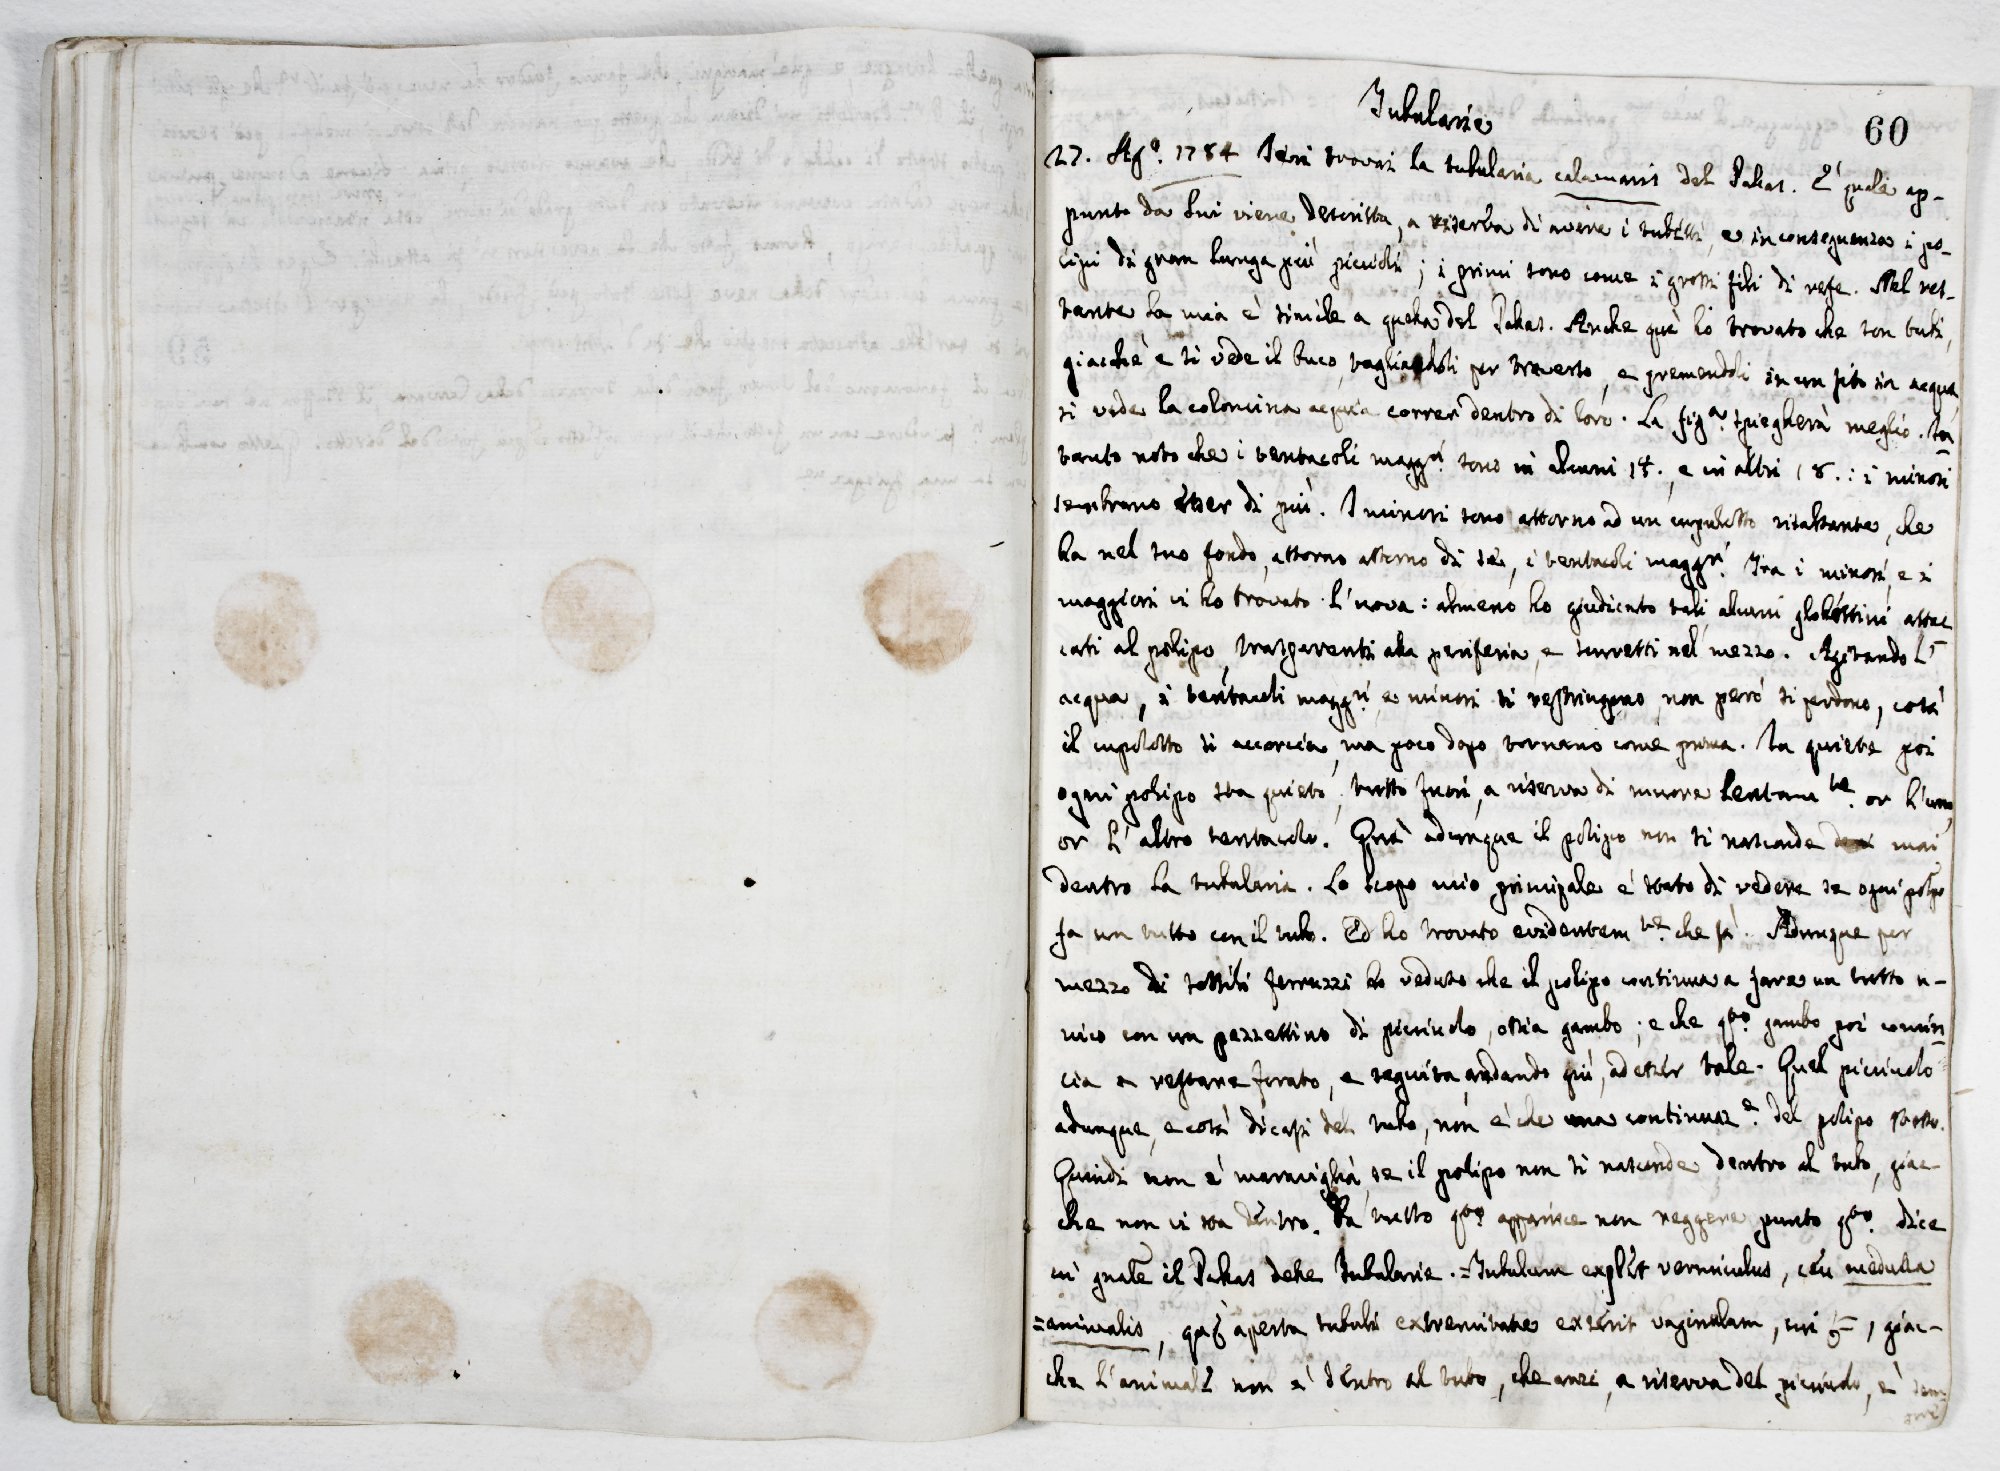 Tubularie
60
27. Ag.º 1784 Ieri trovai la tubularia calamaris del Palas. E' quale ap-
punto da lui viene descritta, a riserba di avere i tubetti, e in conseguenza i po-
lipi di gran lunga più piccioli; i primi sono come i grossi fili di refe. Nel res-
tante la mia è simile a quella del Palas. Anche qui ho trovato che son tubi,
giacchè e si vede il buco, tagliandoli per traverso, e premendoli in un sito in acqua
si vede la coloncina acquea correr dentro di loro. La fig.a spiegherà meglio. In
tanto noto che i tentacoli magg.ri sono in alcuni 14., e in altri 18.: i minori
sembrano esser di più. I minori sono attorno ad un cupoletto risaltante, che
ha nel suo fondo, attorno attorno di sè, i tentacoli magg.ri. Tra i minori, e i
maggiori vi ho trovato l'uova: almeno ho giudicato tali alcuni globettini attac
cati al polipo, trasparenti alla periferia, e scuretti nel mezzo. Agitando l'
acqua, i tentacoli magg.ri e minori si restringono, non però si perdono, così
il cupoletto si accorcia, ma poco dopo tornano come prima. In quiete poi
ogni polipo sta quieto, tutto fuori, a riserva di muore lentam.te or l'uno,
or l'altro tentacolo. Quì adunque il polipo non si nasconde mai
dentro la tubularia. Lo scopo mio principale è stato di vedere se ogni polipo
fa un tutto con il tubo. Ed ho trovato evidentem.te che fà. Adunque per
mezzo di sottili ferruzzi ho veduto che il polipo continua a fare un tutto u-
nico con un pezzettino di picciuolo, ossia gambo; e che q.to gambo poi comin
cia a restare forato, e seguita, andando giù, ad esser tale. Quel picciuolo
adunque, e così dicasi del tubo, non è che una continuaz.e del polipo stesso.
Quindi non è maraviglia, se il polipo non si nasconde dentro al tubo, giac-
che non vi sta dentro. Da tutto q.to apparisce non reggere punto q.to dice
in gnale il Palas delle Tubularie. = Tubulum explet vermiculus, ceu medulla
= animalis, qaę aperta tubuli extremitate exserit vaginulam, , giac-
che l'animale non è dentro al tubo, che anzi, a riserva del picciuolo, è